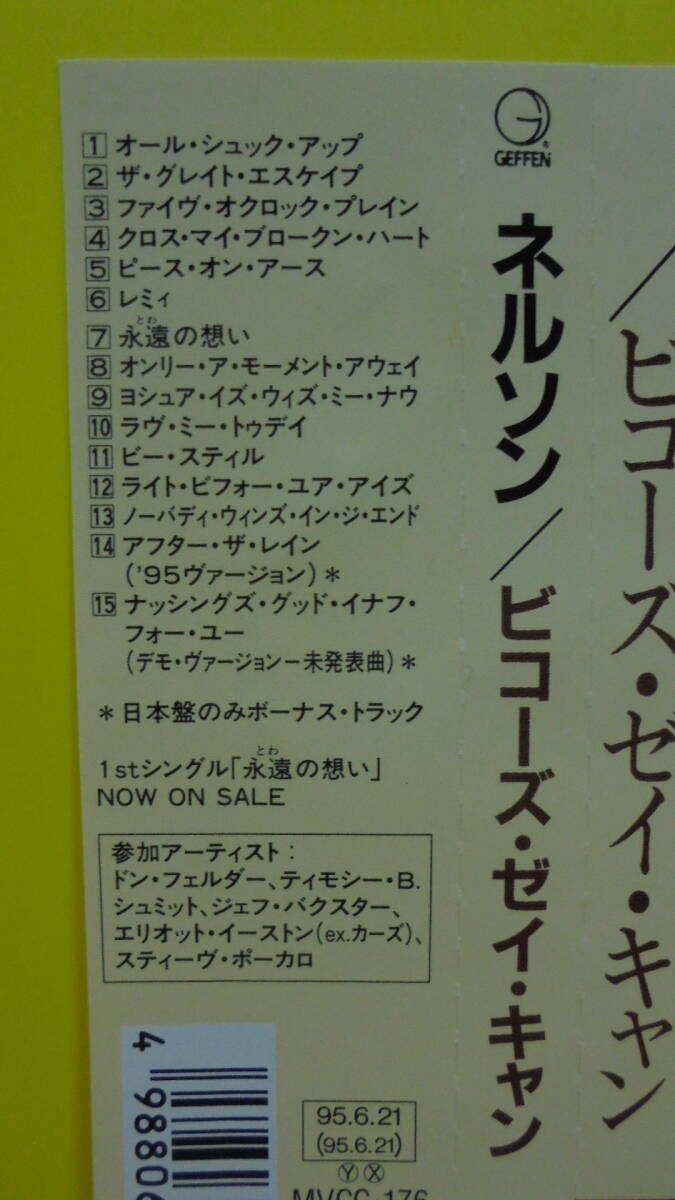 1 オール・シュック・アップ
2 ザ・グレイト・エスケイプ
3 ファイヴ・オクロック・プレイン
4 クロス・マイ・ブロークン・ハート
5 ピース・オン・アース
6 レミィ
とわ
7 永遠の想い
8 オンリー・ア・モーメント・アウェイ
9 ヨシュア・イズ・ウィズ・ミー・ナウ
10 ラヴ・ミー・トゥデイ
11 ビー・スティル
12 ライト・ビフォー・ユア・アイズ
13 ノーバディ・ウィンズ・イン・ジ・エンド
14 アフター・ザ・レイン
('95ヴァージョン)*
15 ナッシングズ・グッド・イナフ・
フォー・ユー
(デモ・ヴァージョン−未発表曲)*
*日本盤のみボーナス・トラック
とわ
1stシングル「永遠の想い」
NOW ON SALE
参加アーティスト：
ドン・フェルダー、ティモシー・B.
シュミット、ジェフ・バクスター、
エリオット・イーストン(ex.カーズ)、
スティーヴ・ポーカロ
4 98806
95.6.21
(95.6.21)
Ⓨ Ⓧ
MVCG-176
GEFFEN
®
ネルソン/ビコーズ・ゼイ・キャン
/ビコーズ・ゼイ・キャン